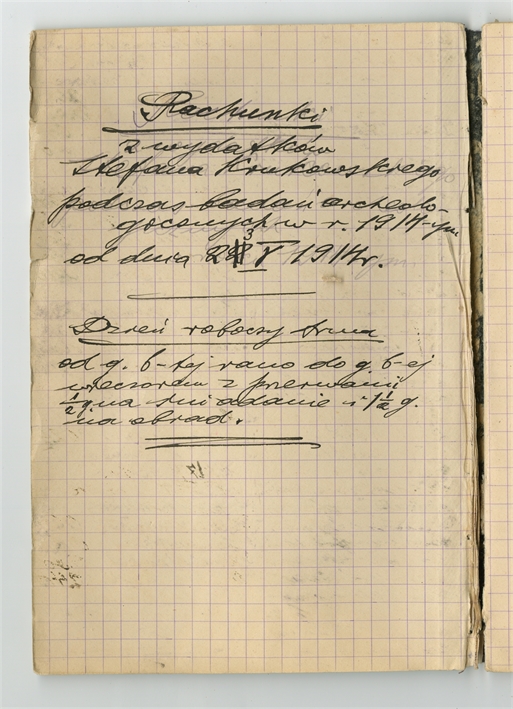 Rachunki
z wydatków
Stefana Krukowskiego
podczas badań archeolo-
gicznych w r. 1914-ym
od dnia 23 V 1914 r.
Dzień roboczy trwa
od g. 6-tej rano do g. 6-ej
wieczorem z przerwami
½ g. na śniadanie i 1½ g.
na obiad.